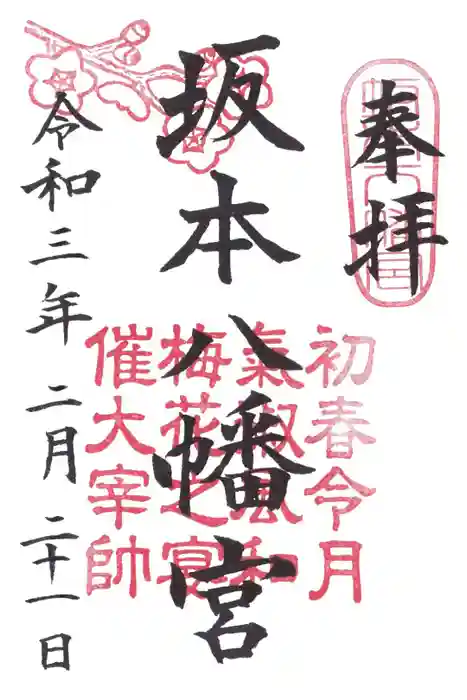 奉拝
坂本八幡宮
初春令月
氣淑風和
梅花之宴
催大宰帥
令和三年 二月 二十一日